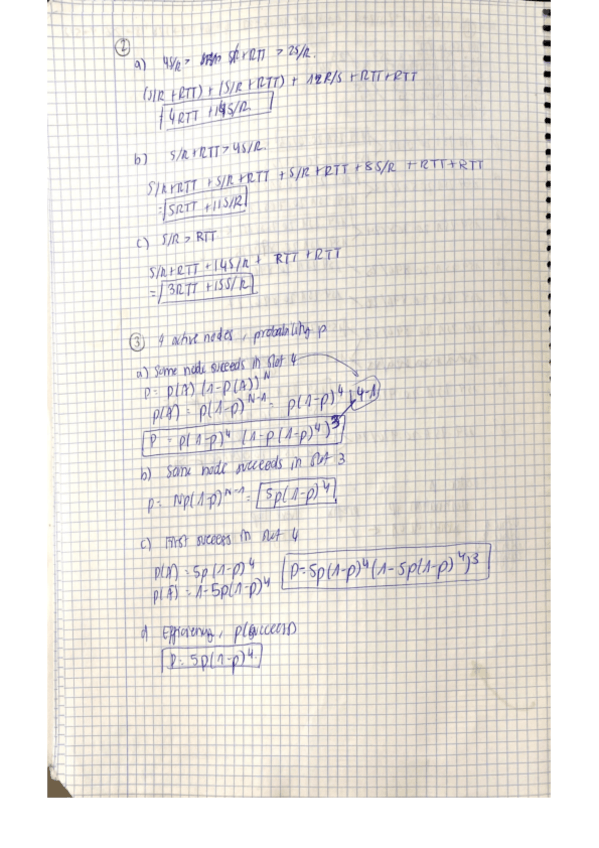 ②
a) 4S/R > S/R + RTT > 2S/R.
(S/R + RTT) + (S/R + RTT) + 12R/S + RTT + RTT
4RTT + 14S/R
b) S/R + RTT > 4S/R.
S/R + RTT + S/R + RTT + S/R + RTT + 8S/R + RTT + RTT
= 5RTT + 11S/R
c) S/R > RTT
S/R + RTT + 14S/R + RTT + RTT
= 3RTT + 15S/R
③ 4 active nodes, probability p
a) Some node succeeds in slot 4
P = P(A) (1-P(A))^N
P(A) = p(1-p)^N-1 = p(1-p)^4
4-1
P = p(1-p)^4 (1-p(1-p)^4)^3
b) Some node succeeds in slot 3
P = Np(1-p)^N-1 = 5p(1-p)^4
c) First success in slot 4
P(A) = 5p(1-p)^4
P(A) = 1-5p(1-p)^4
P = 5p(1-p)^4 (1-5p(1-p)^4)^3
d Efficiency, p(success)
P = 5p(1-p)^4.